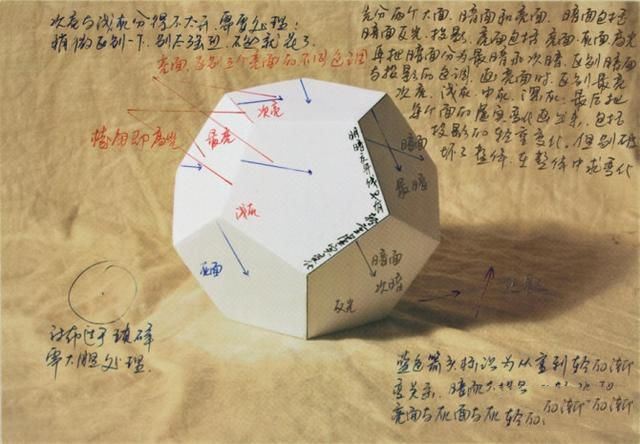 次亮与浅灰分得不太开,需要处理:
稍微区别一下,别太强烈,不然就花了.
亮面,区别三个亮面的不同色调
先分两个大面,暗面和亮面。暗面包括
暗面反光,投影,亮面包括亮面,灰面,高光
再把暗面分为最暗和次暗,区别暗面
与投影的色调,画亮面时,区别最亮
次亮,浅灰,中灰,深灰,最后把
每个面的虚实变化画出来,包括
投影的轻重变化,但别破
坏了整体,在整体中求变化
次亮
棱角即高光
最亮
浅灰
明暗交界线
暗面
最暗
灰面
暗面
次暗
反光
衬布过于琐碎
要大胆处理
蓝色箭头标识为从重到轻的渐
变关系,暗面
亮面与灰面与灰 轻的